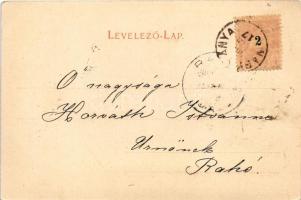 LEVELEZŐ-LAP.
Ő nagysága
Horváth Istvánné
Úrnőnek
Rahó.